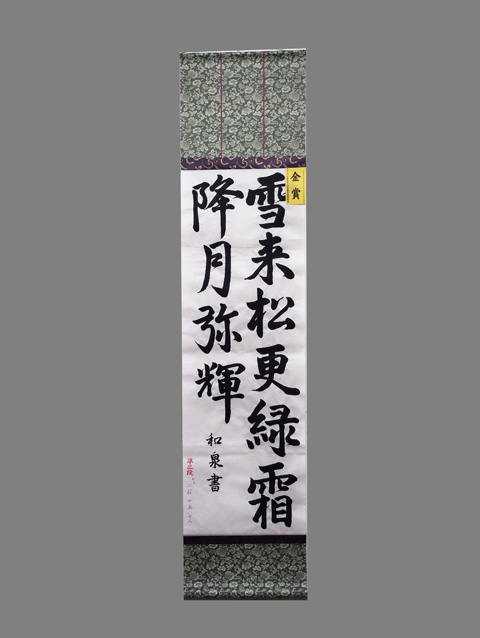 金賞
雪来松更緑霜
降月弥輝
和泉書
準三段